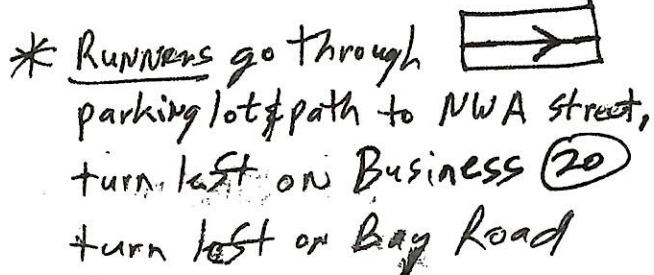 * Runners go through
parking lot & path to NW A street,
turn left on Business 20
turn left on Bay Road